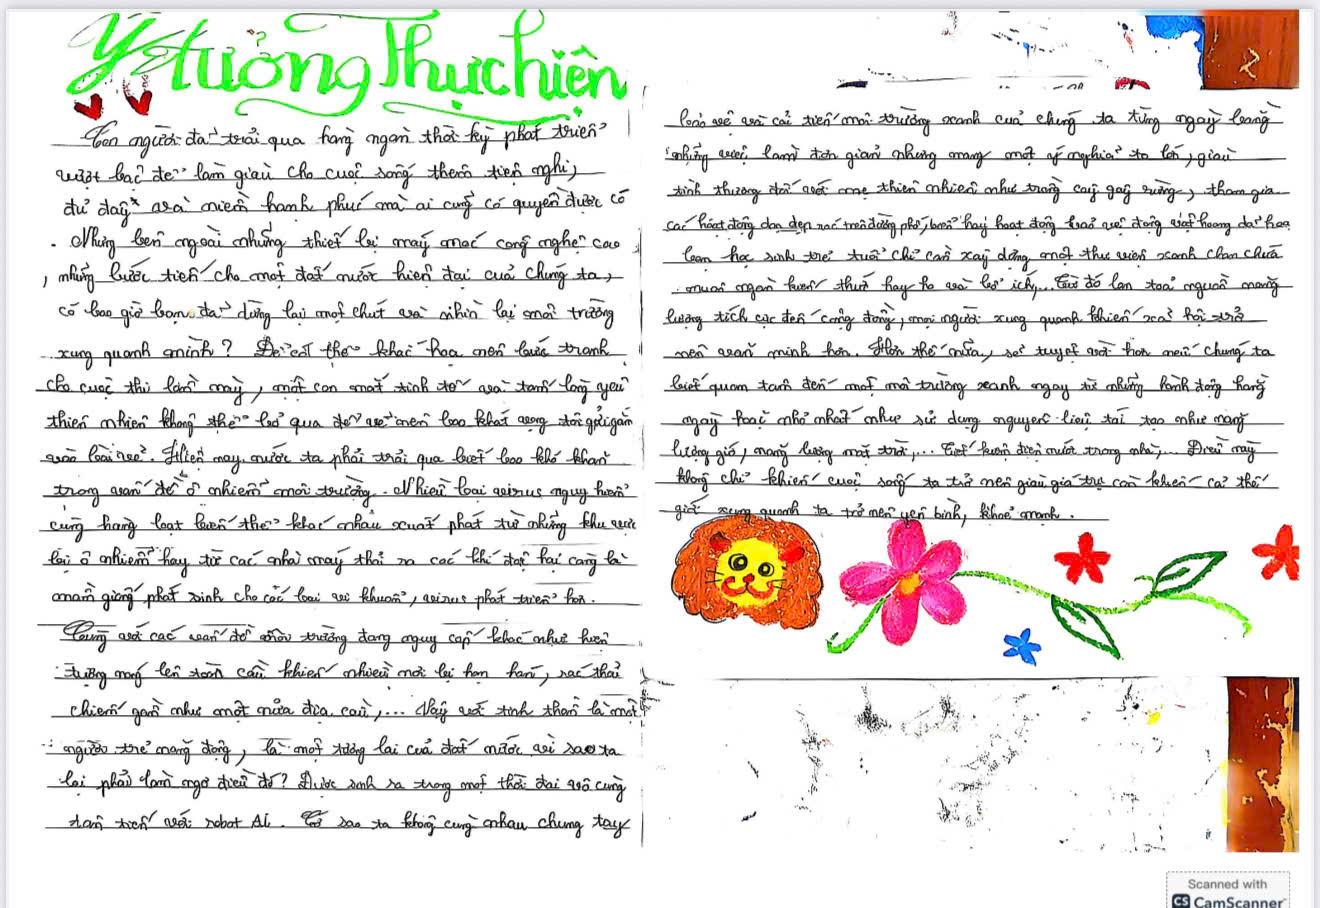 Ý tưởng Thực hiện
Con người đã trải qua hàng ngàn thời kỳ phát triển
vượt bậc để làm giàu cho cuộc sống thêm tiện nghi,
đủ đầy và niềm hạnh phúc mà ai cũng có quyền được có
. Nhưng bên ngoài những thiết bị máy móc công nghệ cao
, những bước tiến cho một đất nước hiện đại của chúng ta,
có bao giờ bạn đã dừng lại một chút và nhìn lại môi trường
xung quanh mình? Để có thể khắc họa nên bức tranh
cho cuộc thi lần này, một con mắt tinh tế và tấm lòng yêu
thiên nhiên không thể bỏ qua để vẽ nên bao khát vọng tôi gửi gắm
vào bài vẽ. Hiện nay, nước ta phải trải qua biết bao khó khăn
trong vấn đề ô nhiễm môi trường. Nhiều loại virus nguy hiểm
cùng hàng loạt biến thể khác nhau xuất phát từ những khu vực
bị ô nhiễm hay từ các nhà máy thải ra các khí độc hại càng là
mầm giống phát sinh cho các loại vi khuẩn, virus phát triển hơn.
Cùng với các vấn đề môi trường đang nguy cấp khác như hiện
tượng nóng lên toàn cầu khiến nhiều nơi bị hạn hán, rác thải
chiếm gần như một nửa địa cầu,... Vậy với tinh thần là một
người trẻ năng động, là một tương lai của đất nước vì sao ta
lại phải làm ngơ điều đó? Được sinh ra trong một thời đại vô cùng
tân tiến với robot AI. Cớ sao ta không cùng nhau chung tay
2
bảo vệ và cải tiến môi trường xanh của chúng ta từng ngày bằng
những việc làm đơn giản nhưng mang một ý nghĩa to lớn, giàu
tình thương đối với mẹ thiên nhiên như trồng cây gây rừng, tham gia
các hoạt động dọn dẹp rác trên đường phố, biển hay hoạt động bảo vệ động vật hoang dã hoặc
bạn học sinh trẻ tuổi chỉ cần xây dựng một thư viện xanh chan chứa
muôn ngàn kiến thức hay ho và bổ ích,... Từ đó lan toả nguồn năng
lượng tích cực đến cộng đồng, mọi người xung quanh khiến xã hội trở
nên văn minh hơn. Hơn thế nữa, sẽ tuyệt vời hơn nếu chúng ta
biết quan tâm đến một môi trường xanh ngay từ những hành động hằng
ngày hoặc nhỏ nhất như sử dụng nguyên liệu tái tạo như năng
lượng gió, năng lượng mặt trời,... tiết kiệm điện nước trong nhà,... Điều này
không chỉ khiến cuộc sống ta trở nên giàu giá trị còn khiến cả thế
giới xung quanh ta trở nên yên bình, khỏe mạnh.
Scanned with
CS CamScanner